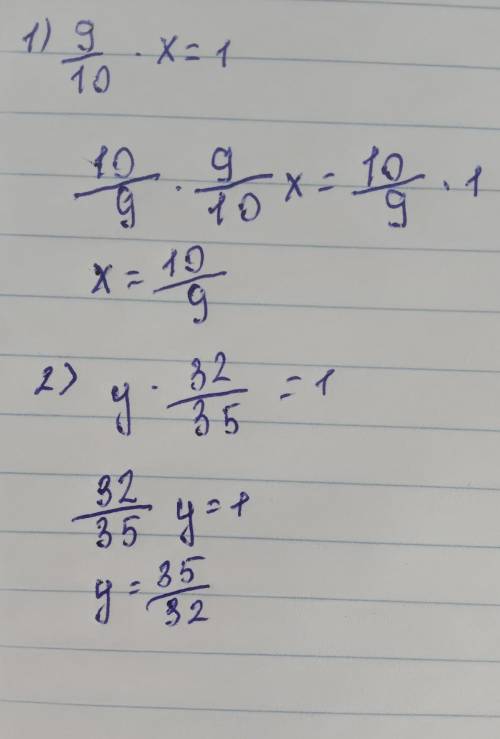 1) 9/10 · x = 1
10/9 · 9/10 x = 10/9 · 1
x = 10/9
2) y · 32/35 = 1
32/35 y = 1
y = 35/32